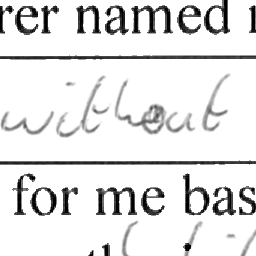 rer named
without
for me bas